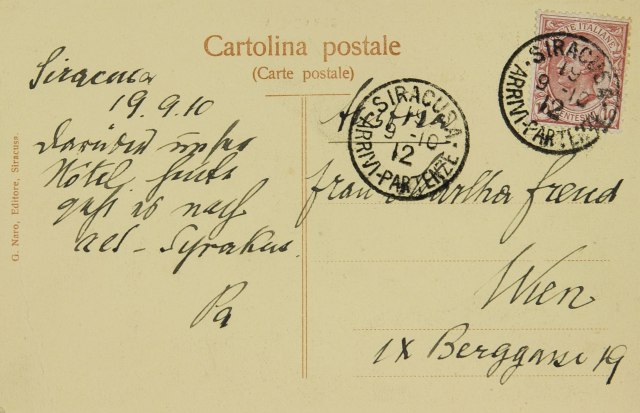 Cartolina postale
(Carte postale)
TE ITALIANE
SIRACUSA
19
9-10
12
ARRIVI-PARTENZE
SIRACUSA
19
9-10
12
ARRIVI-PARTENZE
G. Naro, Editore, Siracusa.
Siracusa
19.9.10
Darüber unser
Hôtel. Heute
geht es nach
Alt-Syrakus.
Pa
Frau Martha Freud
Wien
IX Berggasse 19